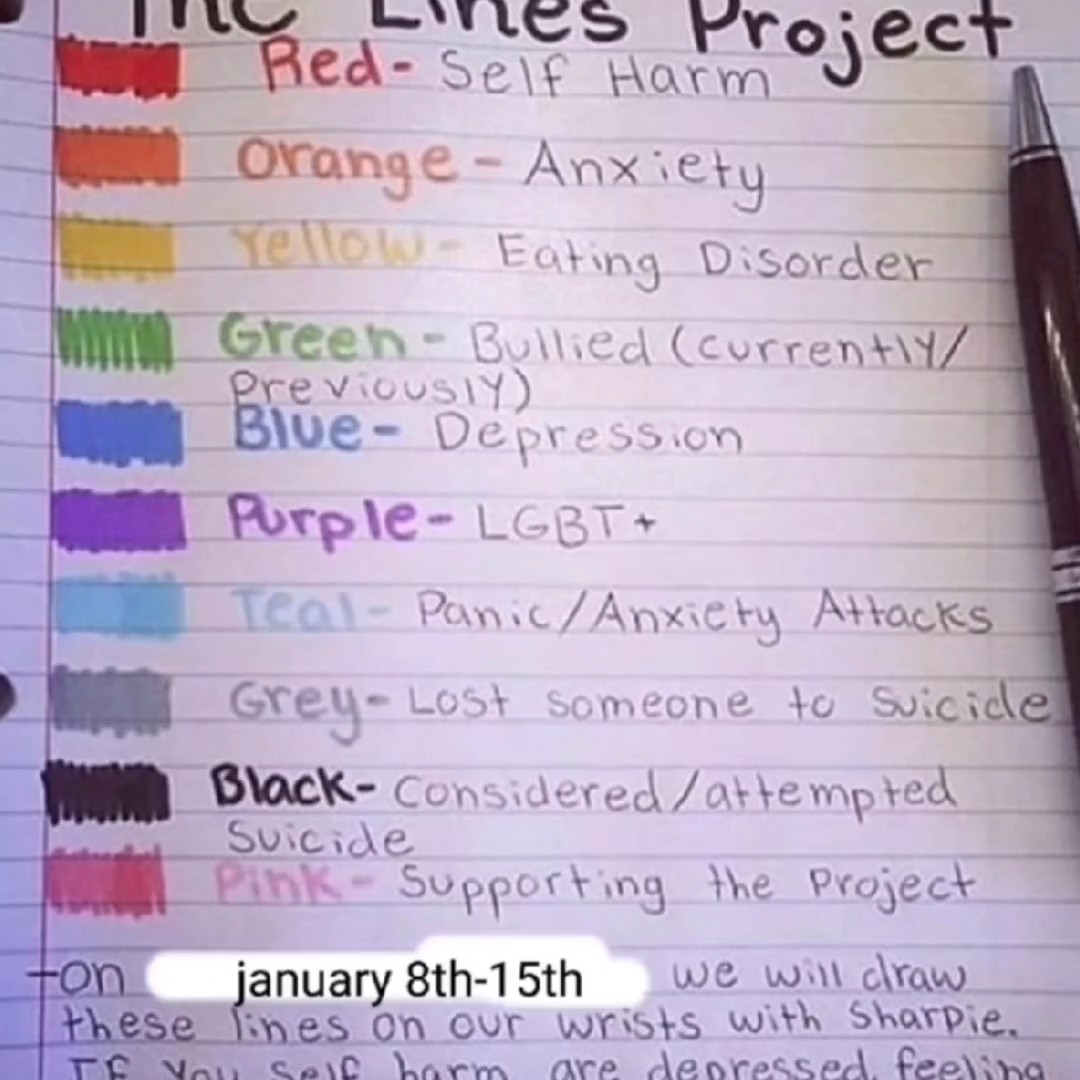 The Lines Project
Red- Self Harm
Orange - Anxiety
Yellow - Eating Disorder
Green - Bullied (currently/
Previously)
Blue - Depression
Purple - LGBT+
Teal - Panic/Anxiety Attacks
Grey - Lost someone to Suicide
Black - Considered/attempted
Suicide
Pink - Supporting the Project
-on january 8th-15th we will draw
these lines on our wrists with Sharpie.
If you self harm, are depressed, feeling